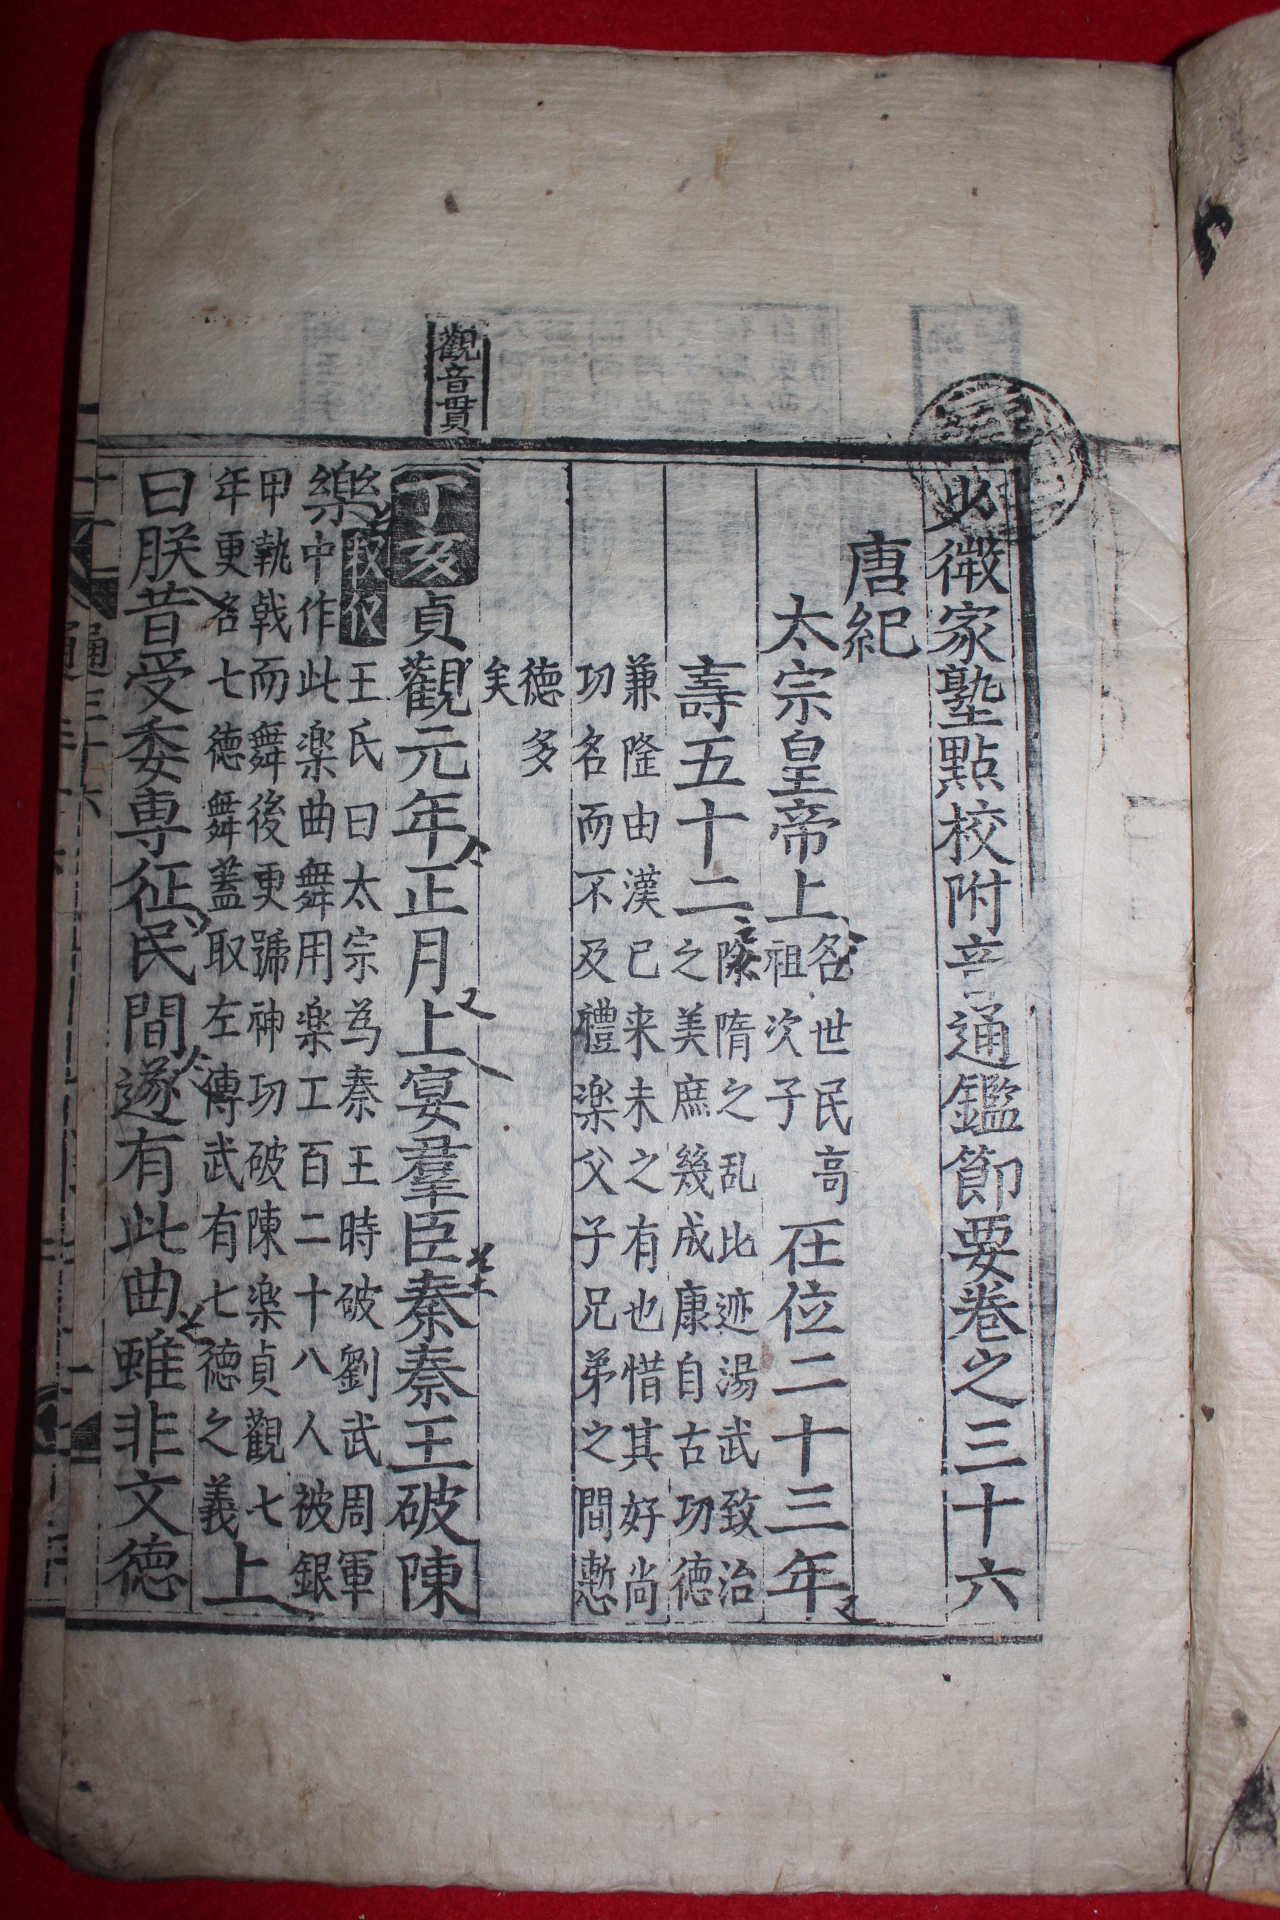 少微家塾點校附音通鑑節要卷之三十六
唐紀
太宗皇帝上 名世民高
祖次子 在位二十三年
壽五十二 除隋之乱比迹湯武致治
之美庶幾成康自古功德
兼隆由漢已来未之有也惜其好尚
功名而不及禮楽父子兄弟之間慙
德多
矣
觀音貫
丁亥 貞觀元年正月上宴羣臣奏秦王破陳
樂 釈仪 王氏曰太宗為秦王時破劉武周軍
中作此楽曲舞用楽工百二十八人被銀
甲執戟而舞後更號神功破陳楽貞觀七
年更名七德舞蓋取左傳武有七德之義 上
曰朕昔受委専征民間遂有此曲雖非文德
通三十六